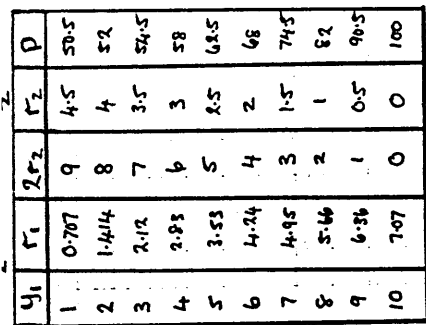 y₁ r₁ 2r₂ r₂ P
1 0.707 9 4.5 50.5
2 1.414 8 4 52
3 2.12 7 3.5 54.5
4 2.83 6 3 58
5 3.53 5 2.5 62.5
6 4.24 4 2 68
7 4.95 3 1.5 74.5
8 5.66 2 1 82
9 6.36 1 0.5 90.5
10 7.07 0 0 100